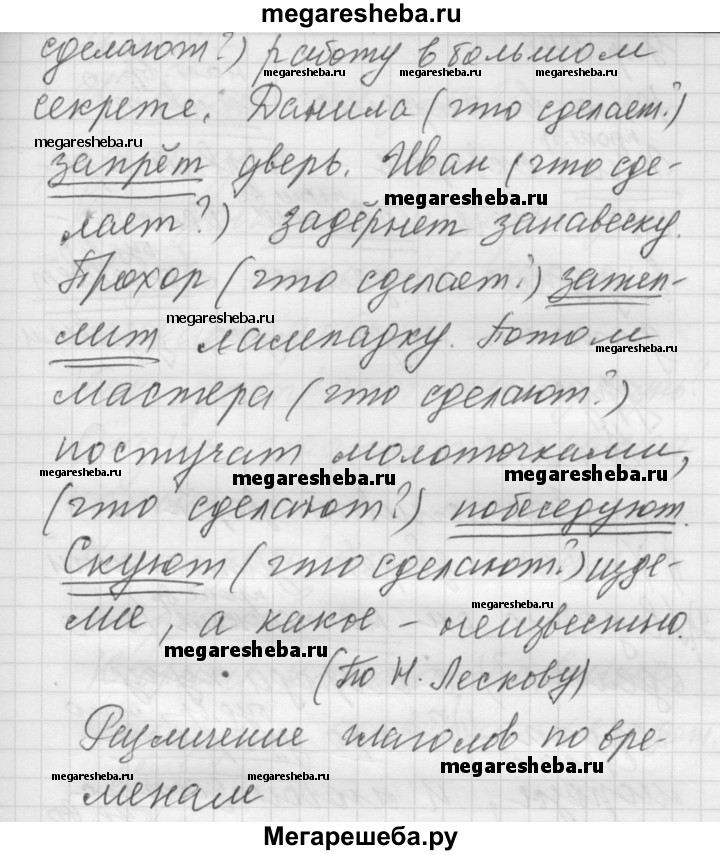 megaresheba.ru
сделают?) работу в большом
megaresheba.ru megaresheba.ru megaresheba.ru
секрете. Данила (что сделает?)
megaresheba.ru
запрёт дверь. Иван (что сде-
megaresheba.ru
лает?) задёрнет занавеску.
Прохор (что сделает?) затеп-
megaresheba.ru
лит лампадку. Потом
megaresheba.ru
мастера (что сделают?)
постучат молоточками,
megaresheba.ru megaresheba.ru megaresheba.ru
(что сделают?) побеседуют.
Скуют (что сделают?) изде-
megaresheba.ru
лие, а какое – неизвестно.
megaresheba.ru
(По Н. Лескову)
Различение глаголов по вре-
megaresheba.ru megaresheba.ru megaresheba.ru
менам
Мегарешеба.ру